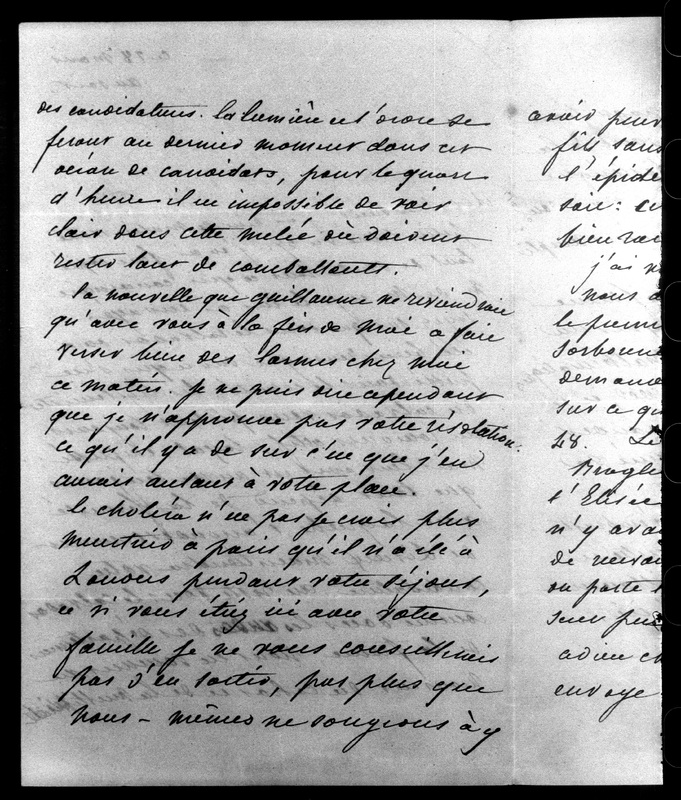 des candidatures. la lumière et l'ordre se
feront au dernier moment dans cet
océan de candidats, pour le quart
d'heure il est impossible de voir
clair dans cette melée où doivent
rester tant de combattants.
la nouvelle que guillaume ne reviendrait
qu'avec vous à la fin de mai a fait
verser bien des larmes chez moi
ce matin. je ne puis dire cependant
que je n'approuve pas votre résolution.
ce qu'il y a de sur c'est que j'en
aurais autant à votre place.
le choléra n'est pas je crois plus
meurtrier à paris qu'il n'a été à
Londres pendant votre séjour,
et si vous étiez ici avec votre
famille je ne vous conseillerais
pas d'en sortir, pas plus que
nous-mêmes ne songeons à y
avoir peur
fût sans
l'épidé
soir: et
bien
j'ai
nous a
le
Sorbonne
deman
sur ce qu
48. Le
Brogli
l'Elisée
n'y ava
de
ou porte

adieu ch
envoye